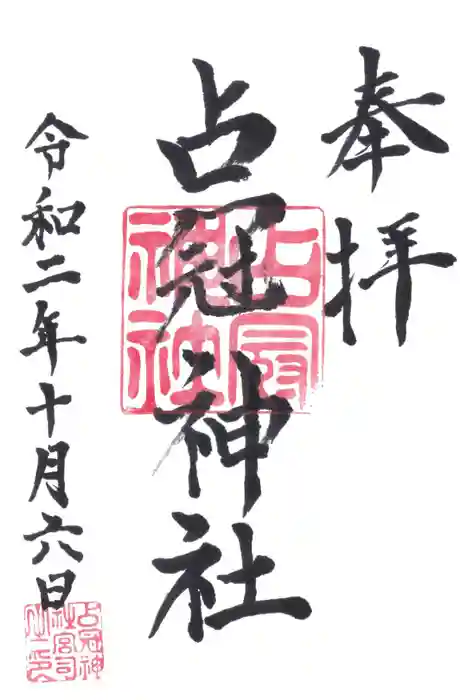 奉拝
占冠神社
令和二年十月六日
占冠神社
占冠神社宮司之印